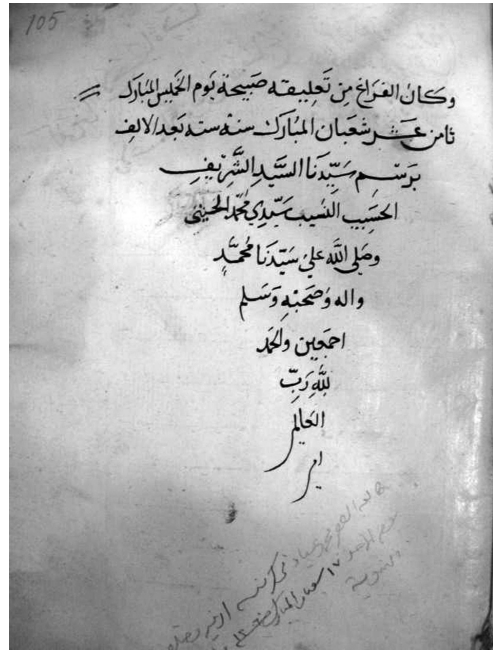 105
وكان الفراغ من تعليقه صبيحة يوم الخميس المبارك
ثامن عشر شعبان المبارك سنة سته بعد الالف
برسم سيدنا السيد الشريف
الحسيب النسيب سيدي محمد الحسيني
وصلى الله علي سيدنا محمد
واله وصحبه وسلم
اجمعين والحمد
لله رب
العالم
ين